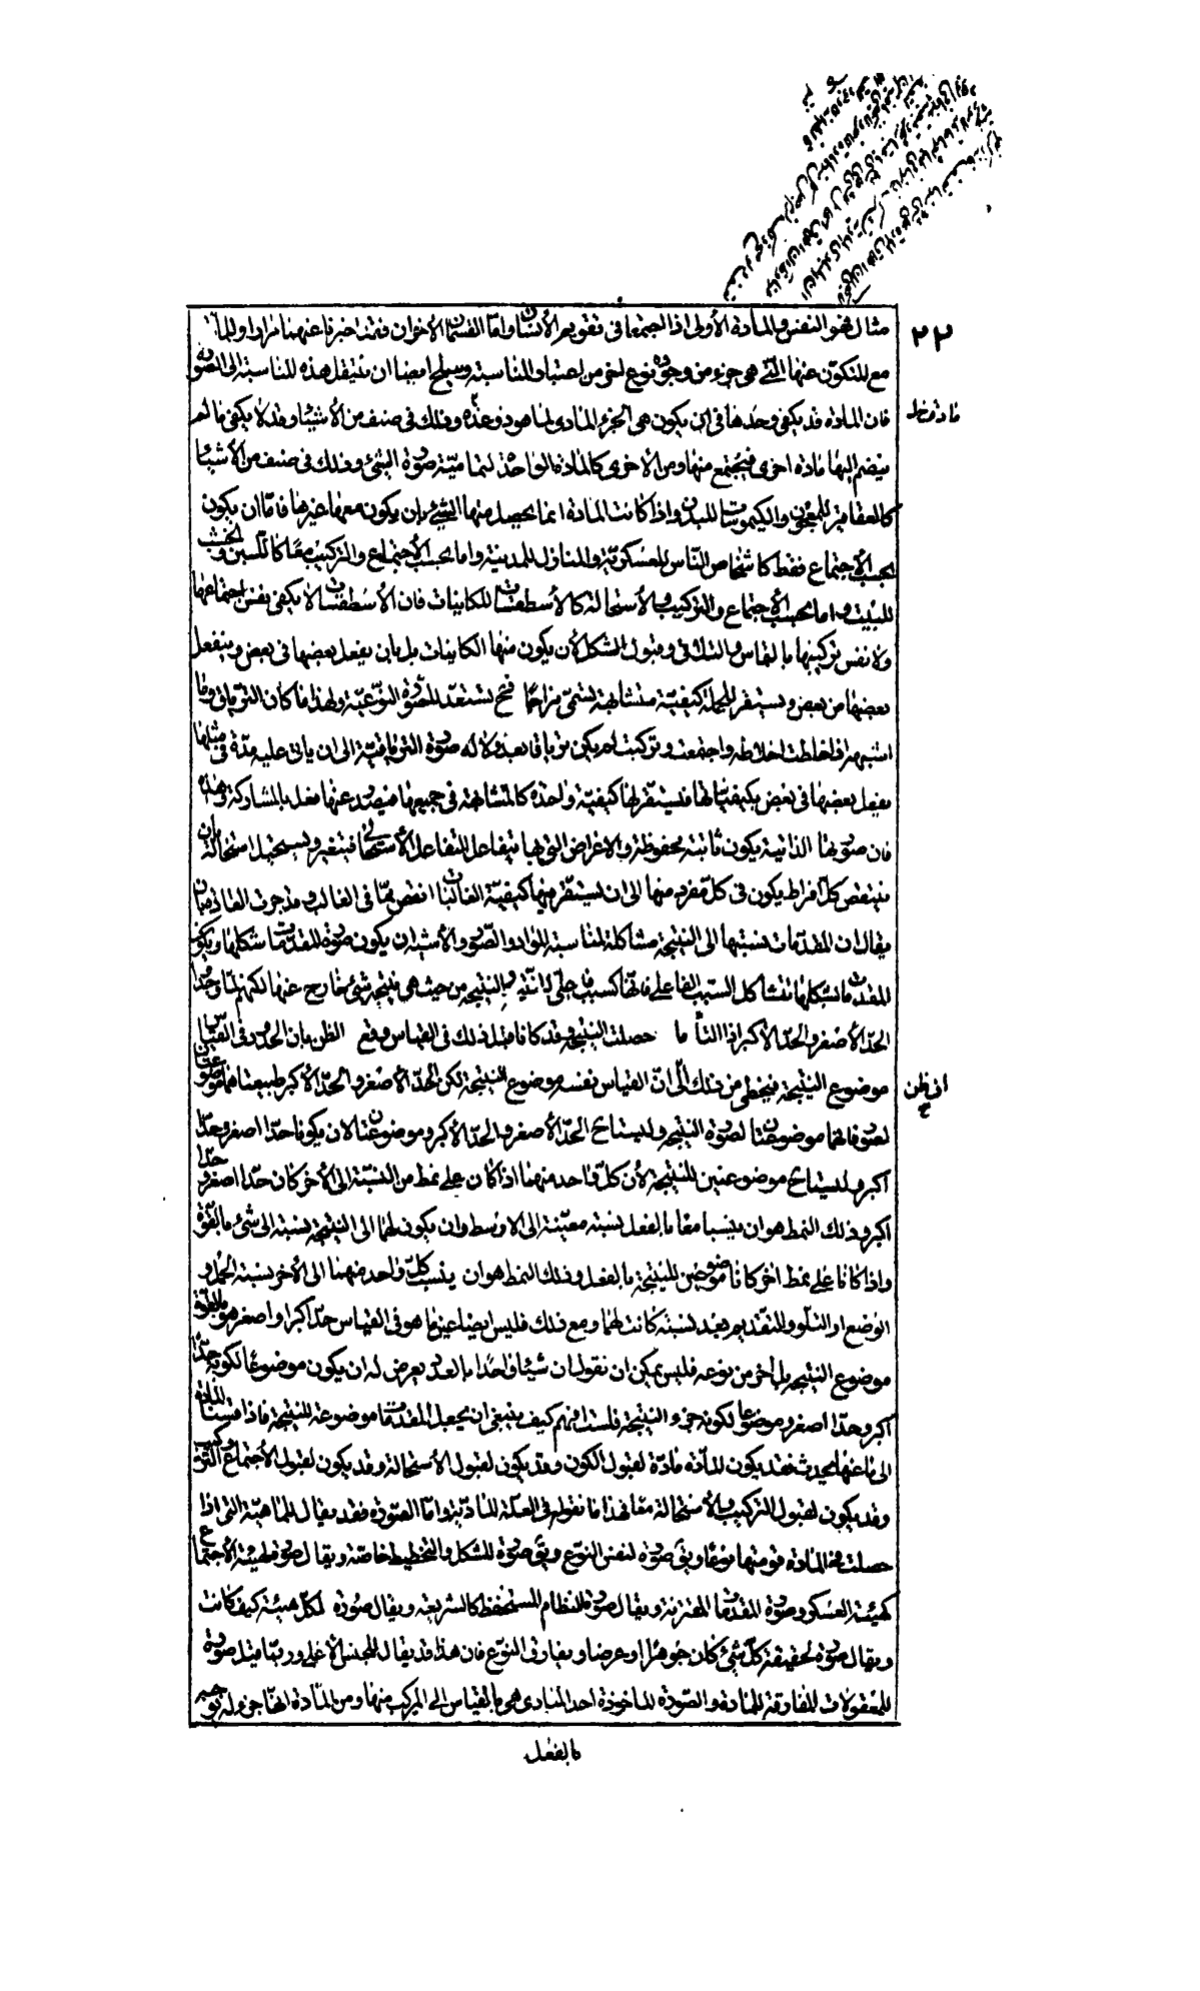 ٢٢
مثال نحو النفس والمادة الأولى اذا اجتمعا فى تقويم الأنسان واما القسمان الأخران فقد اخبرنا عنهما مرارا وللمادة
مع المتكون عنها التى هى جزء من وجوده نوع اخر من اعتبار المناسبة ويصلح ايضا ان تنتقل هذه المناسبة الى الصورة
فان المادة قد يكفى وحدها فى ان يكون هى الجزء المادى لما هو ذو مادة وذلك فى صنف من الأشياء وقد لا يكفى ما لم
ينضم اليها مادة اخرى فيجتمع منها ومن الاخرى كالمادة الواحدة لتمامية صورة الشئ وذلك فى صنف من الأشياء
كالعقاقير للمعجون والكيموسات للبدن واذا كانت المادة انما يحصل منها الشئ بان يكون معها غيرها فاما ان يكون
بحسب الأجتماع فقط كاشخاص الناس للعسكرية والمنازل للمدينة واما بحسب الأجتماع والتركيب معا كاللبن والخشب
للبيت واما بحسب الأجتماع والتركيب والأستحالة كالأسطقسات للكاينات فان الأسطقسات لا يكفى نفس اجتماعها
ولا نفس تركيبها بالتماس والتلاقى وقبول الشكل لأن يكون منها الكاينات بل بان يفعل بعضها فى بعض وينفعل
بعضها من بعض ويستقر للجملة كيفية متشابهة تسمى مزاجا فح تستعد للصورة النوعية ولهذا ما كان الترياق وما
اشبهه اذا خلطت اخلاطه واجتمعت وتركبت لم يكن ترياقا بعد ولا له صورة الترياقية الى ان ياتى عليه مدة فى مثلها
يفعل بعضها فى بعض بكيفياتها فيستقر لها كيفية واحدة كالمتشابهة فى جميعها فيصدر عنها فعل بالمشاركة وهذه
فان صورها الذاتية يكون ثابتة محفوظة والاعراض التى بها يتفاعل التفاعل الأستحالى فيتغير ويستحيل استحالة بان
ينتقص كل افراط يكون فى كل مفرد منها الى ان يستقر فيها كيفية الغالبات انقص مما فى الغالب وقد جرت العادة بان
يقال ان المقدمات نسبتها الى النتيجة مشاكلة لمناسبة المواد والصور والأشبه ان يكون صورة المقدمات شكلها ويكون
المقدمات بشكلها تشاكل السبب الفاعلى فانها كسبب فاعلى للنتيجة والنتيجة من حيث هى نتيجة شئ خارج عنها لكنهم لما وجدوا
الحد الأصغر والحد الأكبر اذا التأما حصلت النتيجة وقد كانا قبل ذلك فى القياس وقع الظن بان الحدود فى القياس
موضوع النتيجة فيخطى من ذلك الى ان القياس نفسه موضوع النتيجة لكن الحد الأصغر والحد الأكبر طبيعتاهما موضوعتان
لصور فانهما موضوعتان لصورة النتيجة وليستا ح الحد الأصغر والحد الأكبر وموضوعتان لان يكونا حدا اصغر وحدا
اكبر وليستا ح موضوعتين للنتيجة لأن كل واحد منهما اذا كان على نمط من النسبة الى الأخر كان حدا اصغر وحدا
اكبر وذلك النمط هو ان ينسبا معا بالفعل نسبة معينة الى الاوسط وان يكون لهما الى النتيجة نسبة الى شئ بالقوة
واذا كانا على نمط اخر كانا موضوعين للنتيجة بالفعل وذلك النمط هو ان ينسب كل واحد منهما الى الأخر نسبة الحمل و
الوضع او التلو والتقديم بعد نسبة كانت لهما ومع ذلك فليس ايضا عين ما هو فى القياس حدا اكبر او اصغر هو بالقوة
موضوع النتيجة بل اخر من نوعه فليس يمكن ان نقول ان شيئا واحدا بالعدد يعرض له ان يكون موضوعا لكونه حدا
اكبر وحدا اصغر وموضوعا لكونه جزء النتيجة فلست افهم كيف ينبغى ان يجعل المقدمات موضوعة للنتيجة فاذا قسنا المادة
الى ما عنها يحدث فقد يكون المادة مادة لقبول الكون وقد يكون لقبول الأستحالة وقد يكون لقبول الأجتماع والتركيب
وقد يكون لقبول التركيب والأستحالة معا فهذا ما نقوله فى العلة المادية واما الصورة فقد يقال للماهية التى اذا
حصلت فى المادة قومتها نوعا ويقال صورة لنفس النوع ويقال صورة للشكل والتخطيط خاصة ويقال صورة لهيئة الأجتماع
كهيئة العسكر وصورة المقدمات المقترنة ويقال صورة للنظام المستحفظ كالشريعة ويقال صورة لكل هيئة كيف كانت
ويقال صورة لحقيقة كل شئ كان جوهرا او عرضا ويفارق النوع فان هذا قد يقال للجنس الأعلى وربما قيل صورة
للمعقولات المفارقة للمادة والصورة الماخوذة احد المبادى هى بالقياس الى المركب منها ومن المادة انها جزء له توجبه
بالفعل